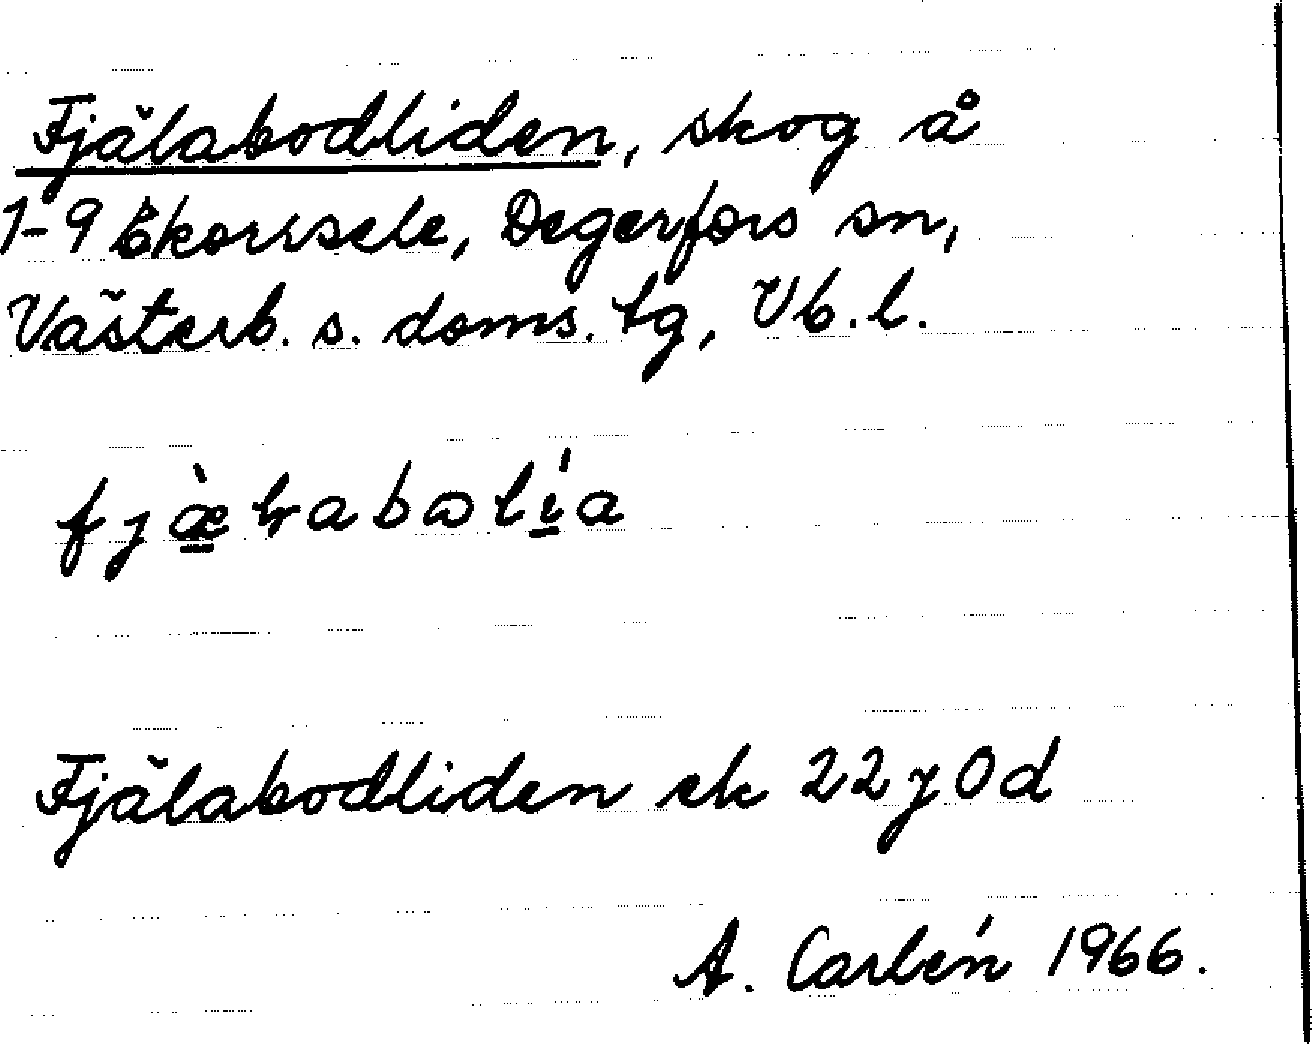 Fjälabodliden, skog å
1-9 Ekorrsele, Degerfors sn,
Västerb. s. doms. tg, Vb. l.
Fjälabodliden ek 22 y 0 d
A. Carlén 1966.